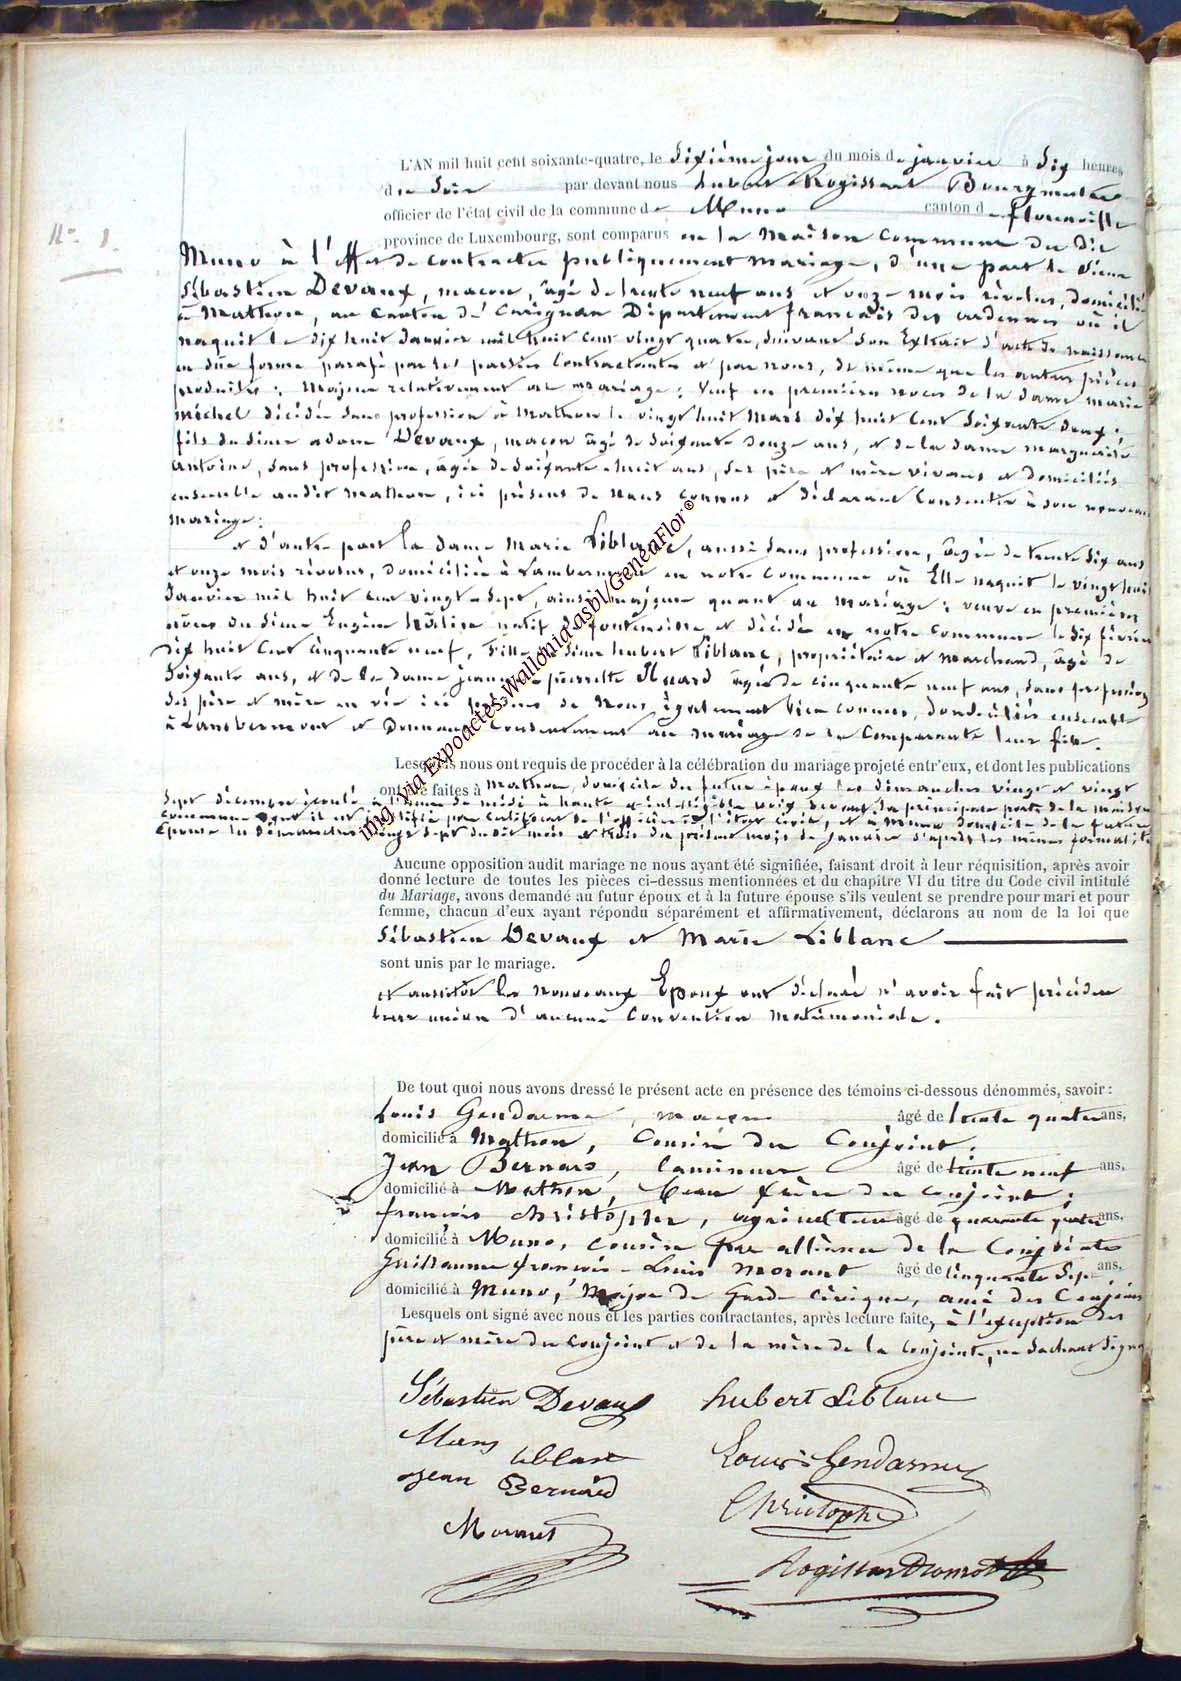 N° 1.
L'AN mil huit cent soixante-quatre, le dixième jour du mois de janvier à six heures
du soir par devant nous hubert Rogissart Bourgmestre
officier de l'état civil de la commune de Muno canton de florenville
province de Luxembourg, sont comparus en la Maison Commune du dit
Muno à l'effet de contracter publiquement mariage, d'une part le Sieur
Sébastien Devaux, maçon, âgé de trente neuf ans et onze mois révolus, domicilié
à Mathon, au canton de Carignan Département français des ardennes où il
naquit le dix huit Janvier mil huit cent vingt quatre, suivant son Extrait d'acte de naissance
en due forme parafé par les parties Contractantes et par nous, de même que les autres pièces
produites ; Majeur relativement au mariage ; Veuf en premières noces de la dame marie
michel décédée sans profession à Mathon le vingt huit Mars dix huit cent soixante deux ;
fils du Sieur adam Devaux, maçon âgé de soixante douze ans, et de la dame marguerite
antoine, sans profession, âgée de soixante huit ans, ses père et mère vivans et domiciliés
ensemble audit mathon, ici présens de nous connus et déclarant Consentir à son nouveau
mariage ;
et d'autre part la dame Marie Liblanc, aussi sans profession, âgée de trente six ans
et onze mois révolus, domiciliée à Lambermont en notre Commune où Elle naquit le vingt huit
Janvier mil huit cent vingt sept, ainsi majeure quant au mariage ; veuve en premières
nôces du Sieur Eugène natif de fontenoille et décédé en notre Commune le dix février
dix huit Cent Cinquante neuf, Fille du Sieur hubert Liblanc, propriétaire et Marchand, âgé de
soixante ans, et de la dame jeanne pierrette Huard âgée de cinquante neuf ans, sans profession
ses père et mère en vie ici présens de Nous également bien connus, domiciliés ensemble
à Lambermont et Donnant Consentement au mariage de la Comparante leur fille.
Lesquels nous ont requis de procéder à la célébration du mariage projeté entr'eux, et dont les publications
ont été faites à Mathon, domicile du futur époux les dimanches vingt et vingt
sept décembre écoulé à l'heure de midi à haute et intelligible voix devant la principale porte de la maison
commune ainsi qu'il est justifié par certificat de l'officier de l'état Civil, et à Muno domicile de la future
Epouse les Dimanches vingt sept du dit mois et trois du présent mois de Janvier d'après les mêmes formalités
Aucune opposition audit mariage ne nous ayant été signifiée, faisant droit à leur réquisition, après avoir
donné lecture de toutes les pièces ci-dessus mentionnées et du chapitre VI du titre du Code civil intitulé
du Mariage, avons demandé au futur époux et à la future épouse s'ils veulent se prendre pour mari et pour
femme, chacun d'eux ayant répondu séparément et affirmativement, déclarons au nom de la loi que
Sébastien Devaux et Marie Liblanc
sont unis par le mariage.
et aussitôt les nouveaux Epoux ont déclaré n'avoir fait précéder
leur union d'aucune Convention matrimoniale.
De tout quoi nous avons dressé le présent acte en présence des témoins ci-dessous dénommés, savoir :
Louis Gendarme, maçon âgé de trente quatre ans,
domicilié à Mathon, Cousin du Conjoint ;
Jean Bernard, lamineur âgé de trente neuf ans,
domicilié à Mathon, beau frère du conjoint ;
françois christophe, agriculteur âgé de quarante quatre ans,
domicilié à Muno, cousin par alliance de la Conjointe
Guillaume françois Louis Mornart âgé de cinquante Sept ans,
domicilié à Muno, Major de Garde Civique, ami des Conjoints
Lesquels ont signé avec nous et les parties contractantes, après lecture faite, à l'exception des
père et mère du conjoint et de la mère de la conjointe, ne Sachant Signer
Sébastien Devaux hubert Liblanc
Marie Liblanc Louis Gendarme
Jean Bernard
Christophe
Rogissart
img. via Expoactes-Wallonia asbl/GeneaFlor©